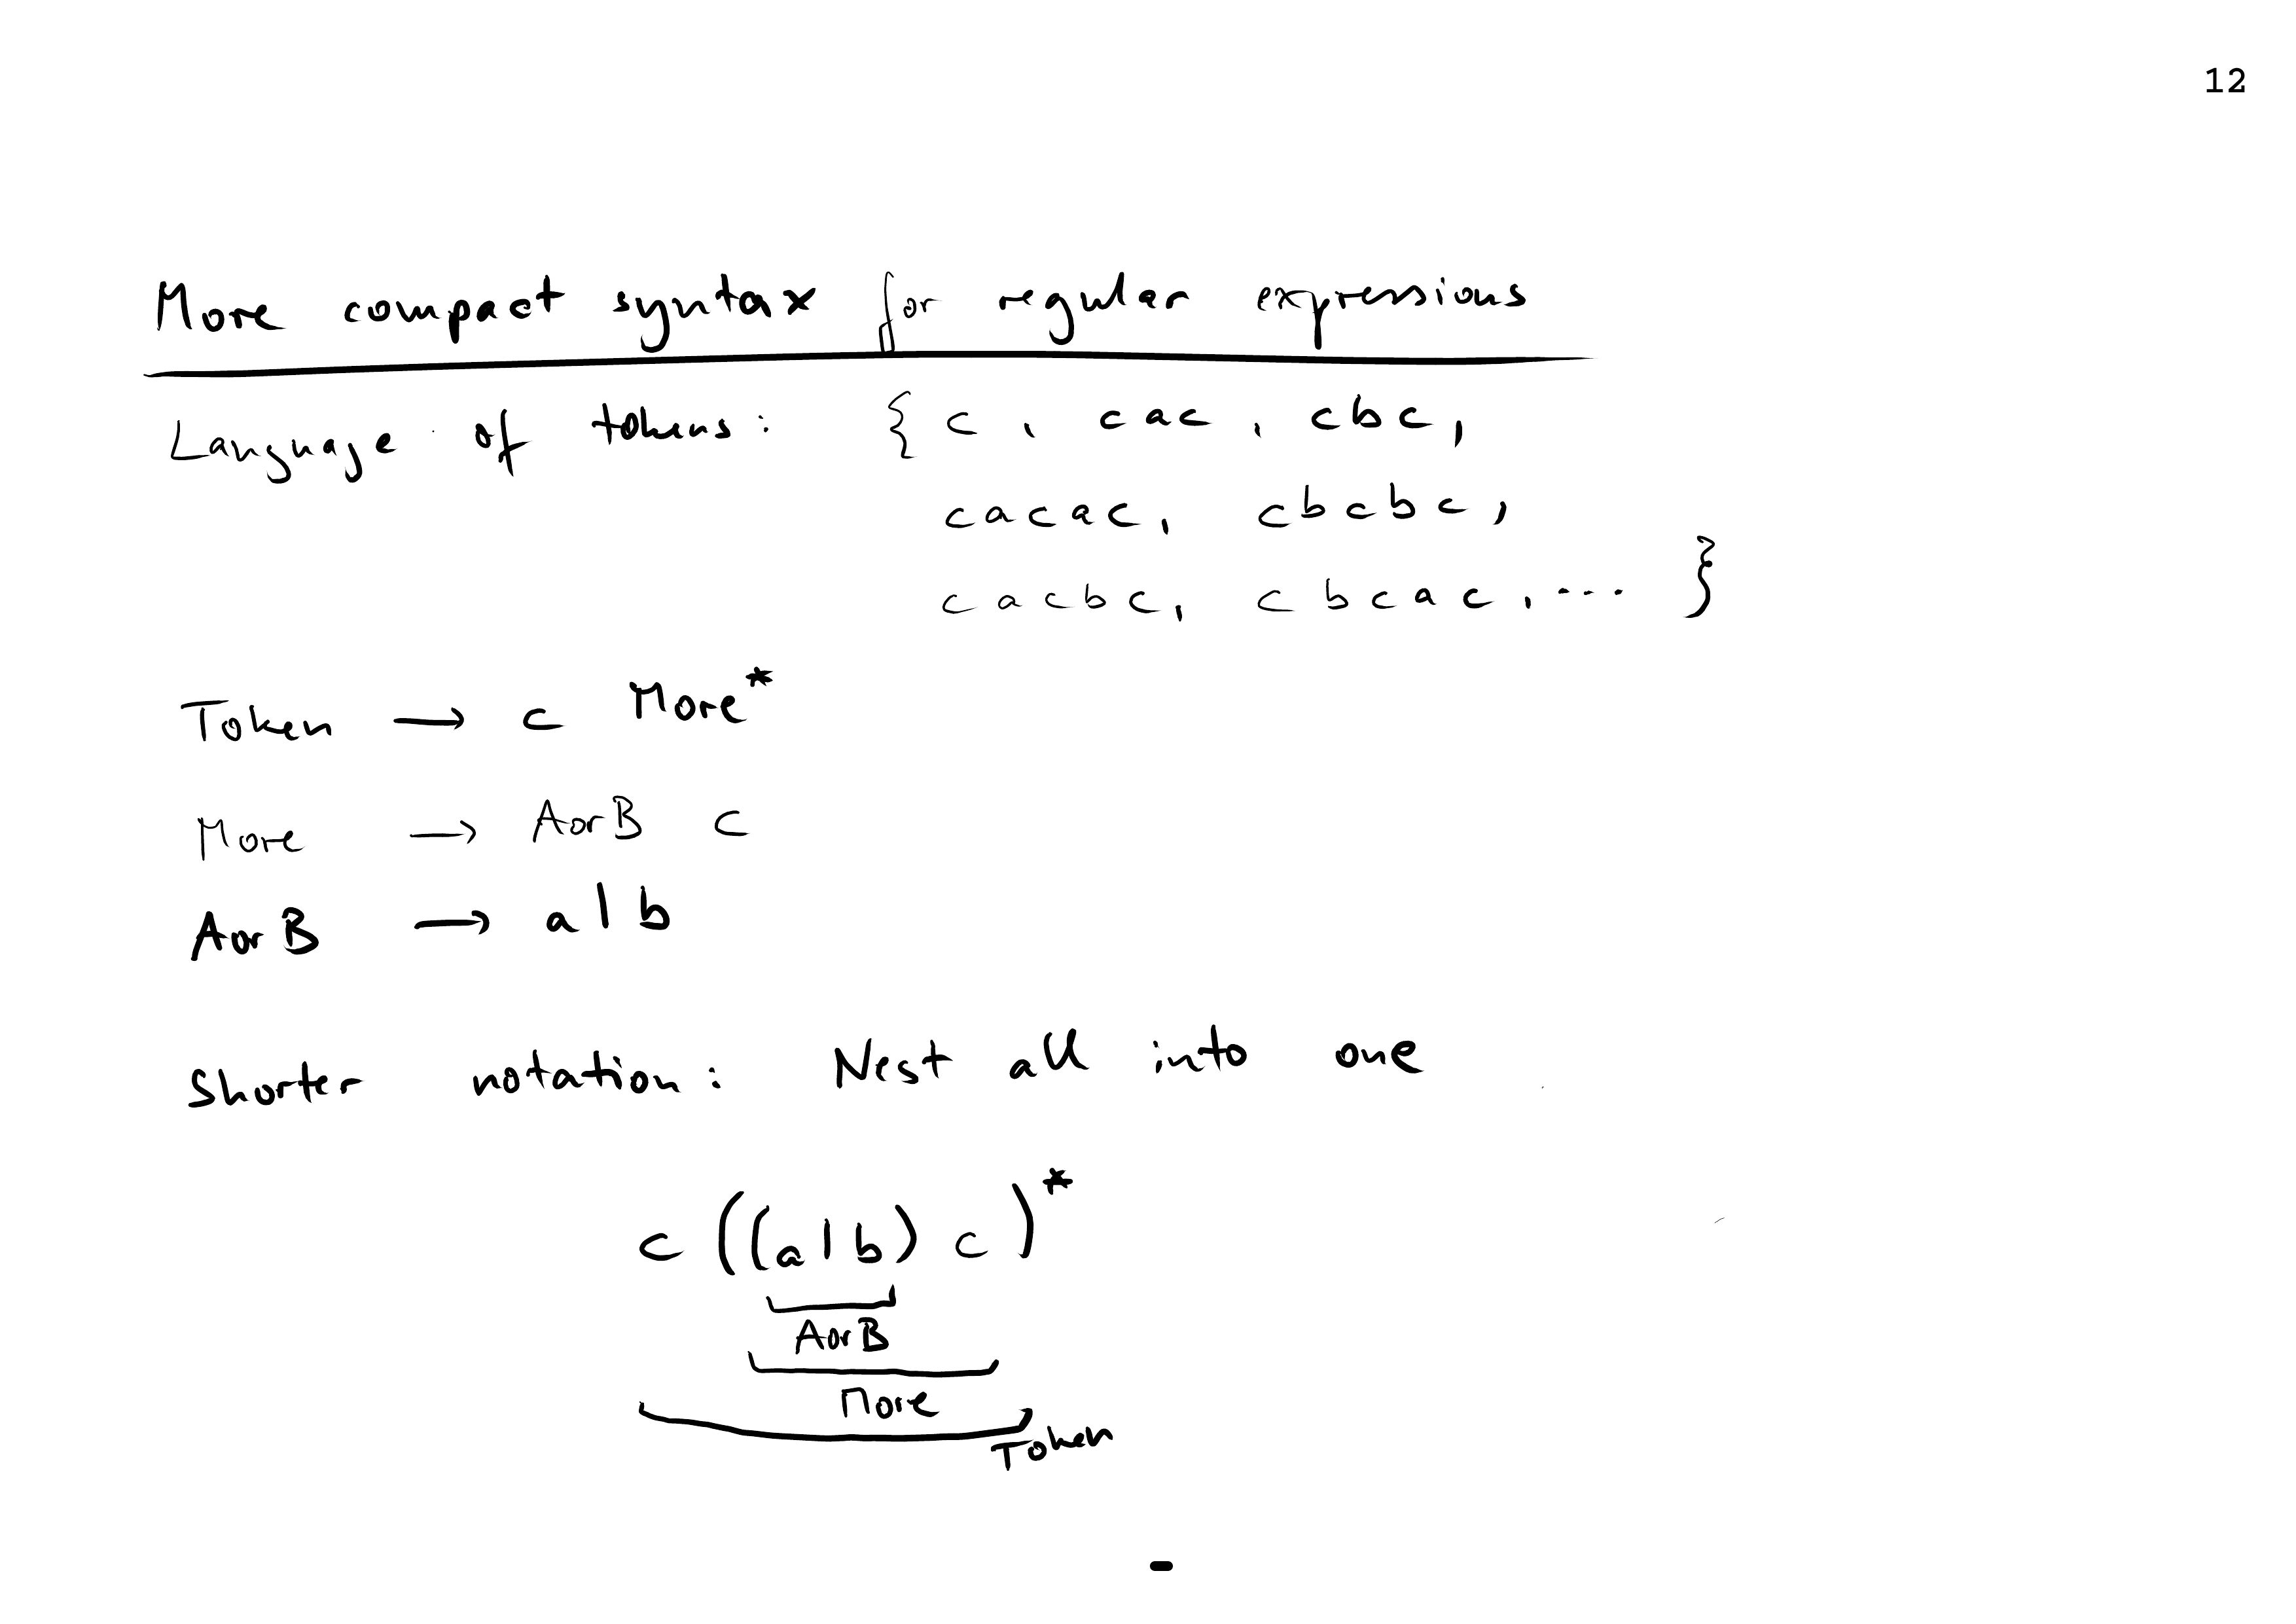 12
More compact syntax for regular expressions
Language of tokens: { c, cac, cbc,
cacac, cbcbc,
cacbc, cbcac, ... }
Token → c More*
More → AorB c
AorB → a|b
Shorter notation: Nest all into one
c ((a|b) c)*
AorB
More
Token